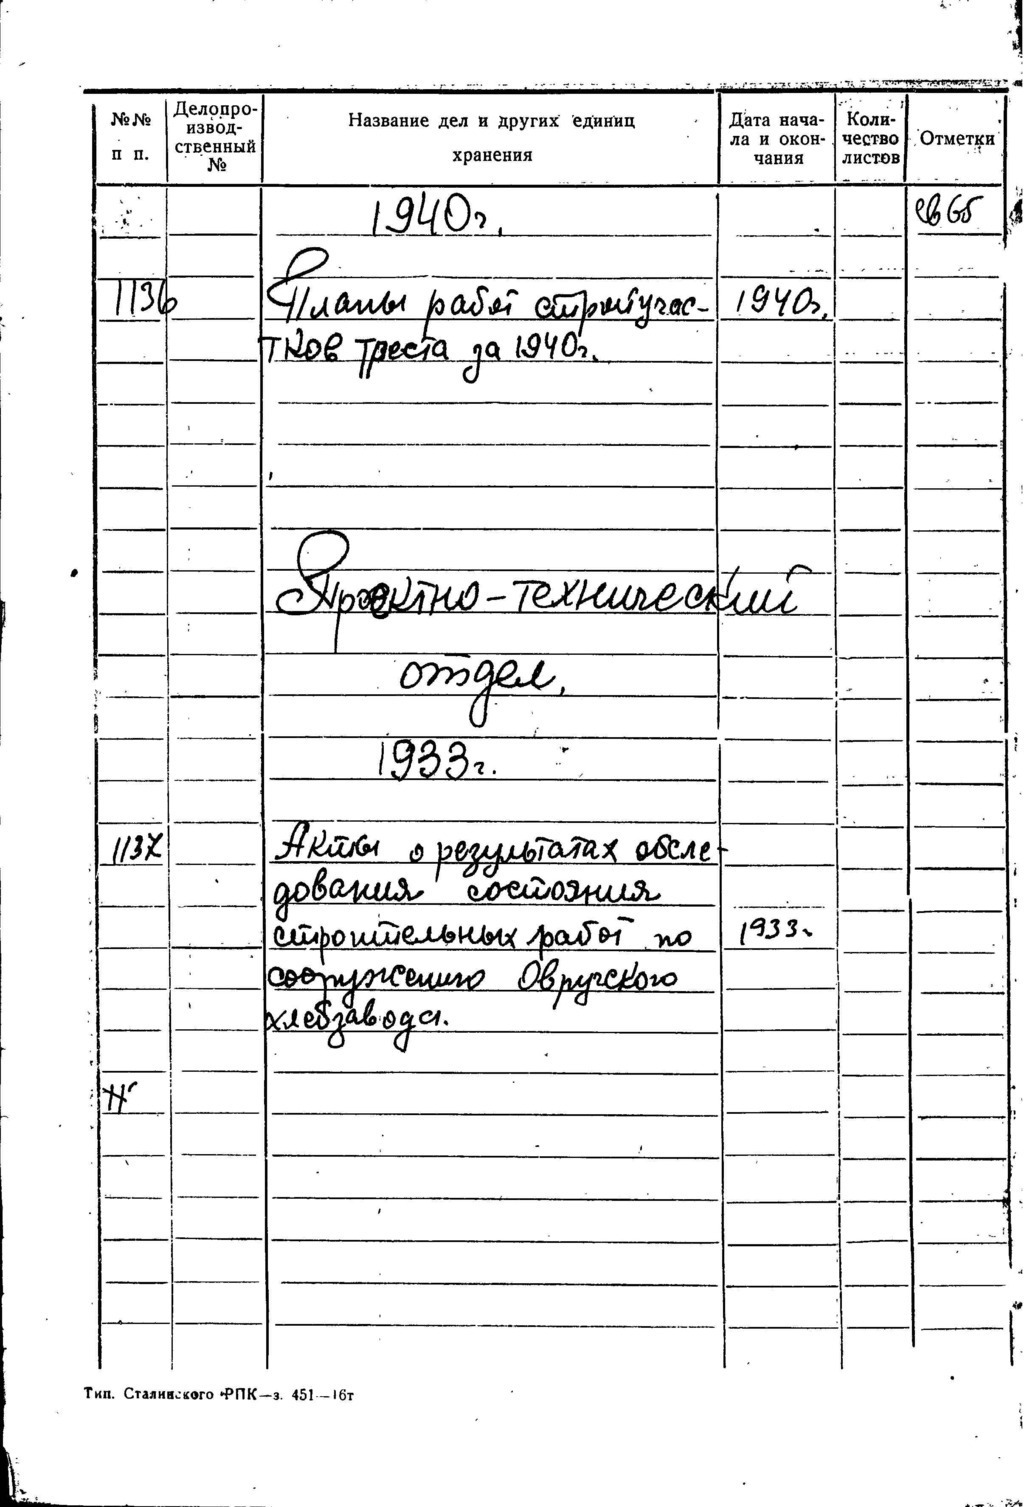 №№ п п.
Делопроизвод-ственный №
Название дел и других единиц хранения
Дата нача-ла и окон-чания
Коли-чество листов
Отметки
1940г.
1136 Планы работ стройучас- 1940г.
тков треста за 1940г.
Проектно-технический
отдел.
1933г.
1137 Акты о результатах обсле-
дования состояния
строительных работ по 1933г
сооружению Овручского
хлебзавода.
Тип. Сталинского РПК—з. 451—16т